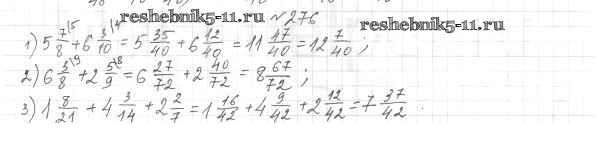 reshebnik5-11.ru №276 reshebnik5-11.ru
1) 5 7/8 \5 + 6 3/10 \4 = 5 35/40 + 6 12/40 = 11 47/40 = 12 7/40 ;
2) 6 3/8 \9 + 2 5/9 \8 = 6 27/72 + 2 40/72 = 8 67/72 ;
3) 1 8/21 + 4 3/14 + 2 2/7 = 1 16/42 + 4 9/42 + 2 12/42 = 7 37/42 .